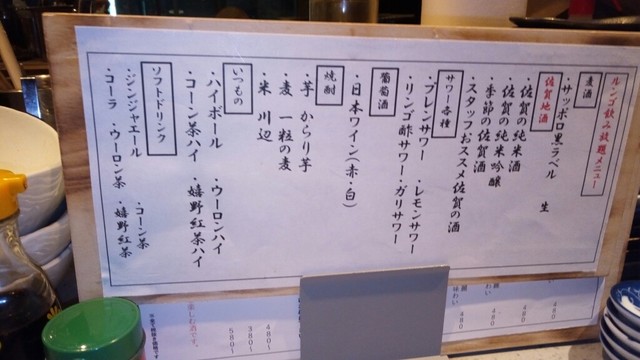 ルンゴ飲み放題メニュー
麦酒
・サッポロ黒ラベル 生
佐賀地酒
・佐賀の純米酒
・佐賀の純米吟醸
・季節の佐賀酒
・スタッフおススメ佐賀の酒
サワー各種
・プレンサワー ・レモンサワー
・リンゴ酢サワー・ガリサワー
葡萄酒
・日本ワイン(赤・白)
焼酎
・芋 からり芋
・麦 一粒の麦
・米 川辺
いつもの
・ハイボール ・ウーロンハイ
・コーン茶ハイ ・嬉野紅茶ハイ
ソフトドリンク
・ジンジャエール ・コーン茶
・コーラ ・ウーロン茶 ・嬉野紅茶
480
480
味わい 480
480～
380～
580～
楽しむ酒です。